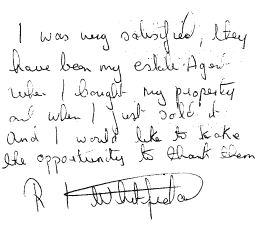 I was very satisfied, they
have been my estate Agent
when I bought my property
and when I just sold it.
And I would like to take
the opportunity to thank them
R